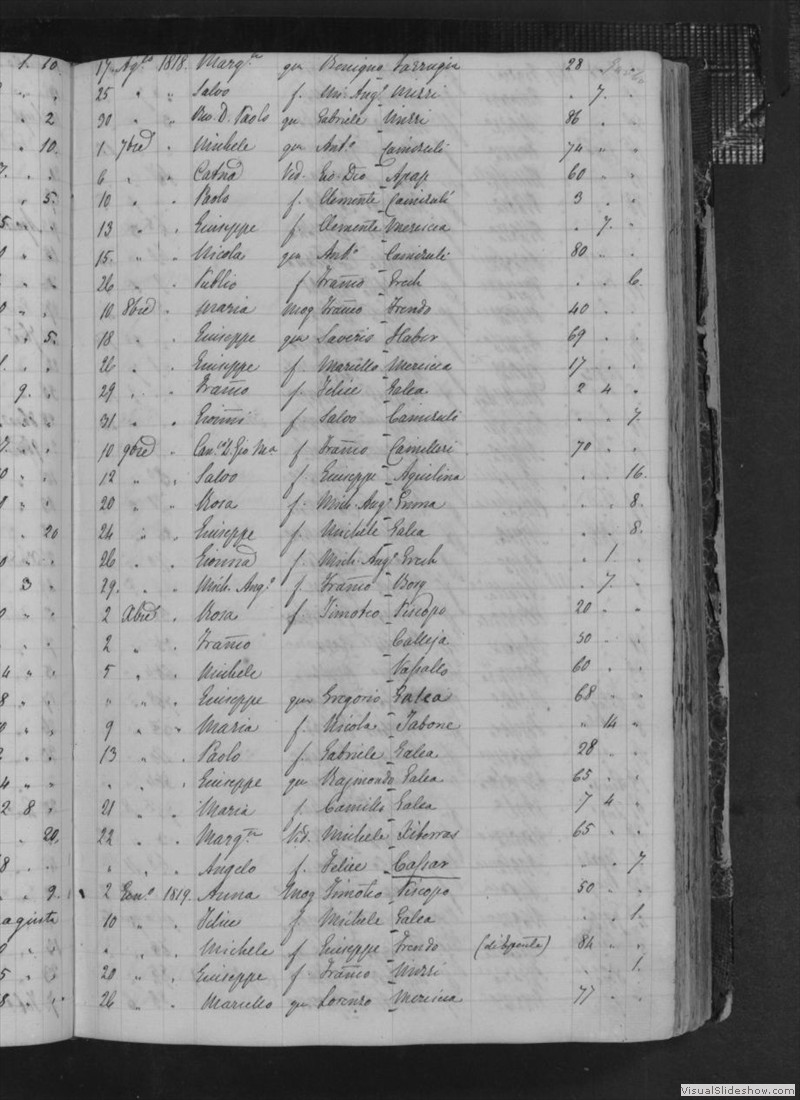 17 Agto 1818. Margta qu Benigno Farrugia 28 . .
25 " " Salvo f. Mic. Ango Mizzi . 7. .
30 " " Rev. D. Paolo qu Gabriele Mizzi 86 . .
1 7bre " Michele qu Anto Camenzuli 74 " .
6 " " Catna Vid. Gio Dio Apap 60 . .
10 . " Paolo f. Clemente Camenzuli 3 . .
13 . " Giuseppe f. Clemente Mercieca . 7. .
15. " . Nicola qu Anto Camenzuli 80 " .
26 . . Publio f Franco Grech . . 6.
10 8bre . Maria Mog Franco Frendo 40 . .
18 " . Giuseppe qu Saverio Haber 69 . .
26 . . Giuseppe f. Mariello Mercieca 17 . .
29 . . Franco f. Felice Galea 2 4 .
31 . . Gionni f Salvo Camenzuli . . 7.
10 9bre . Can.co D. Gio Ma f Franco Camilleri 70 . .
12 . . Salvo f. Giuseppe Aquilina . . 16.
20 " . Rosa f. Mich. Ango . . 8.
24 " . Giuseppe f. Michele Galea . . 8.
26 . . Gionna f. Mich. Ango Grech . 1. .
29. . . Mich. Ango f Franco Borg . 7. .
2 Xbre . Rosa f. Timoteo Piscopo 20 . .
2 " . Franco Calleja 50 . .
5 " . Michele Vassallo 60 . .
" " . Giuseppe qu Gregorio Galea 68 . .
9 . . Maria f. Nicola Tabone " 14 "
13 . . Paolo f. Gabriele Galea 28 . .
" . . Giuseppe qu Rajmondo Galea 65 . .
21 " . Maria f. Camillo Galea 7 4 .
22 " . Margta Vid. Michele Xiberras 65 . .
" . . Angelo f. Felice Cassar . . 7.
2 Genro 1819. Anna Mog Timoteo Piscopo 50 . .
10 " . Felice f Michele Galea . . 1.
" . . Michele f Giuseppe Frendo 84 " .
20 " . Giuseppe f. Franco Mizzi . . 1.
26 " . Mariello qu Lorenzo Mercieca 77 . .
VisualSlideshow.com